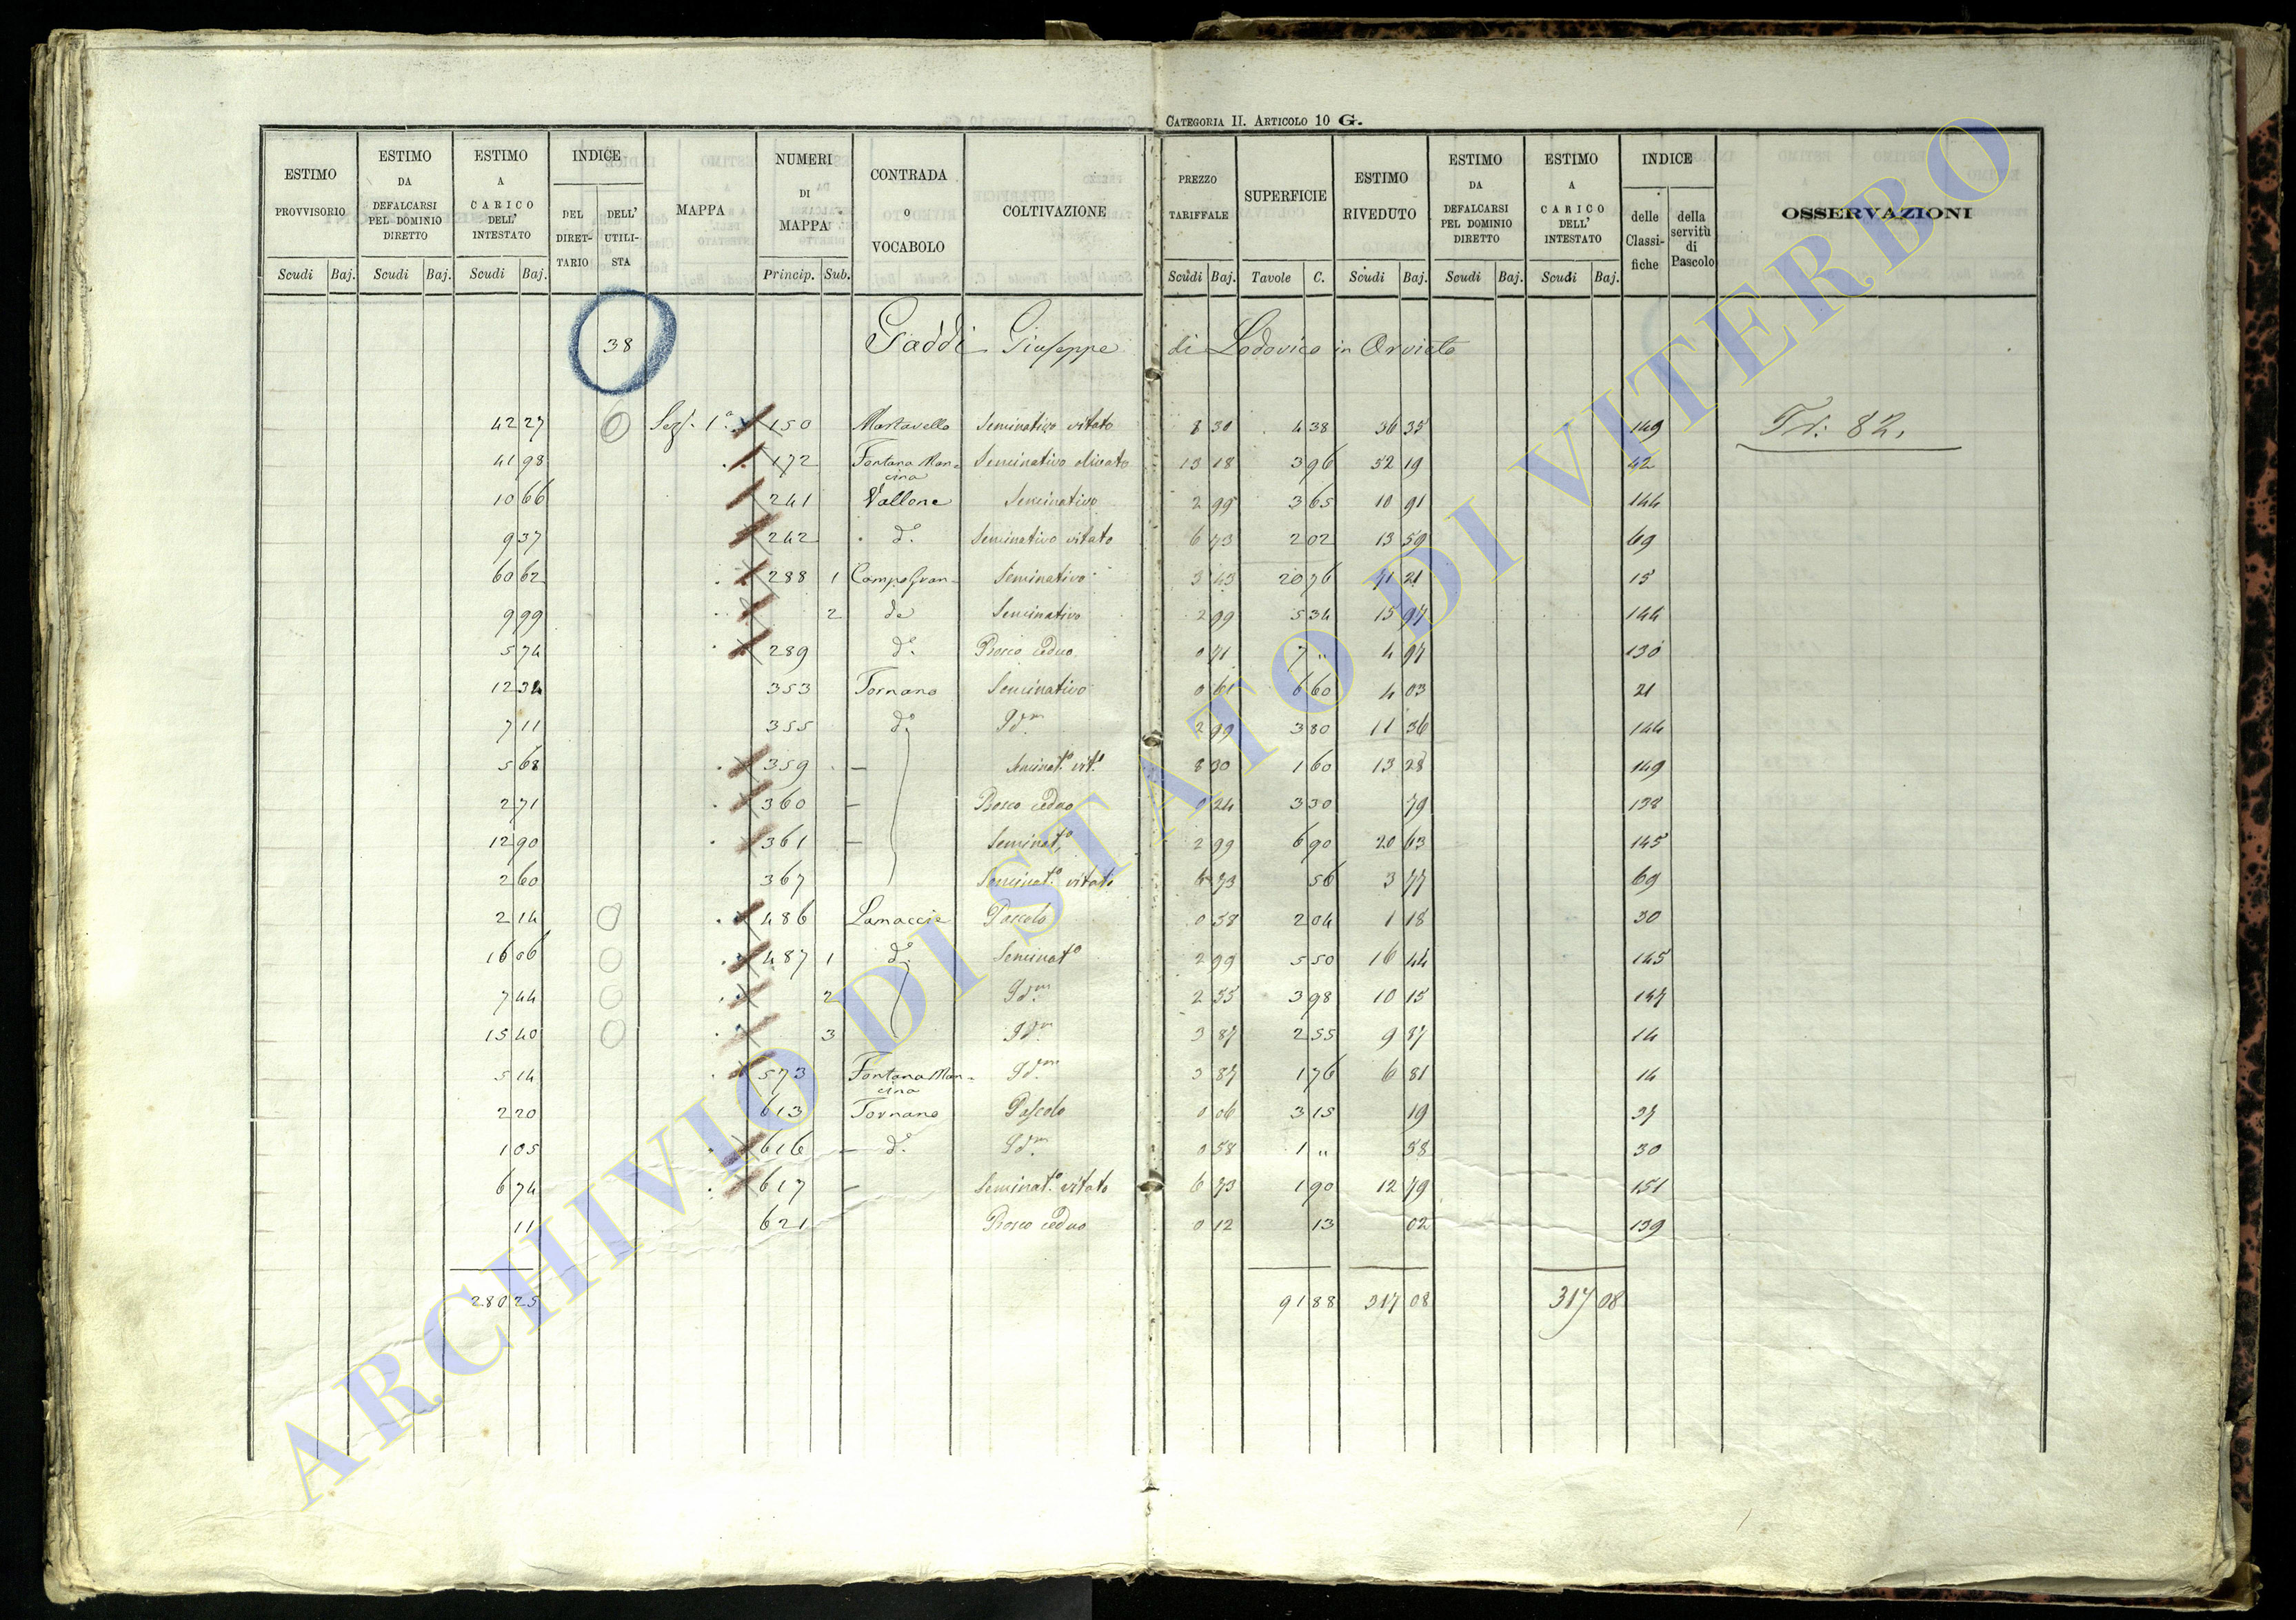 CATEGORIA II. ARTICOLO 10 G.
ESTIMO PROVVISORIO | ESTIMO DA DEFALCARSI PEL DOMINIO DIRETTO | ESTIMO A CARICO DELL' INTESTATO | INDICE | MAPPA | NUMERI DI MAPPA | CONTRADA O VOCABOLO | COLTIVAZIONE | PREZZO TARIFFALE | SUPERFICIE | ESTIMO RIVEDUTO | ESTIMO DA DEFALCARSI PEL DOMINIO DIRETTO | ESTIMO A CARICO DELL' INTESTATO | INDICE | OSSERVAZIONI
DEL DIRETTARIO | DELL' UTILISTA | delle Classifiche | della servitù di Pascolo
Scudi | Baj. | Scudi | Baj. | Scudi | Baj. | Princip. | Sub. | Scudi | Baj. | Tavole | C. | Scudi | Baj. | Scudi | Baj. | Scudi | Baj.
38 Gaddi Giuseppe di Lodovico in Orvieto
42 27 Sez. 1ª 150 Mastavello Seminativo vitato 8 30 4 38 36 35 149
41 98 172 Fontana Mancina Seminativo olivato 13 18 3 96 52 19 42
10 66 241 Vallone Seminativo 2 99 3 65 10 91 144
9 37 242 dº Seminativo vitato 6 73 2 02 13 59 69
60 62 288 1 Campo Gran- Seminativo 3 43 20 76 71 21 15
9 99 2 de Seminativo 2 99 5 34 15 97 144
5 74 289 dº Bosco ceduo 0 71 7 " 4 97 130
12 34 353 Tornano Seminativo 0 61 6 60 4 03 21
7 11 355 dº Idm 2 99 3 80 11 36 144
5 68 359 — Seminatº vitº 8 30 1 60 13 28 149
2 71 360 — Bosco ceduo 0 24 3 30 79 138
12 90 361 — Seminatº 2 99 6 90 20 63 145
2 60 367 Seminatº vitato 6 73 56 3 77 69
2 14 486 Lamaccie Pascolo 0 58 2 04 1 18 30
16 06 487 1 dº Seminatº 2 99 5 50 16 44 145
7 44 2 Idm 2 55 3 98 10 15 147
15 40 3 Idm 3 87 2 55 9 87 14
5 14 573 Fontana Mancina Idm 3 87 1 76 6 81 14
2 20 613 Tornano Pascolo 0 06 3 15 19 37
1 05 616 — dº Idm 0 58 1 " 58 30
6 74 617 — Seminatº vitato 6 73 1 90 12 79 151
11 621 Bosco ceduo 0 12 13 02 139
280 25 91 88 317 08 317 08
ARCHIVIO DI STATO DI VITERBO